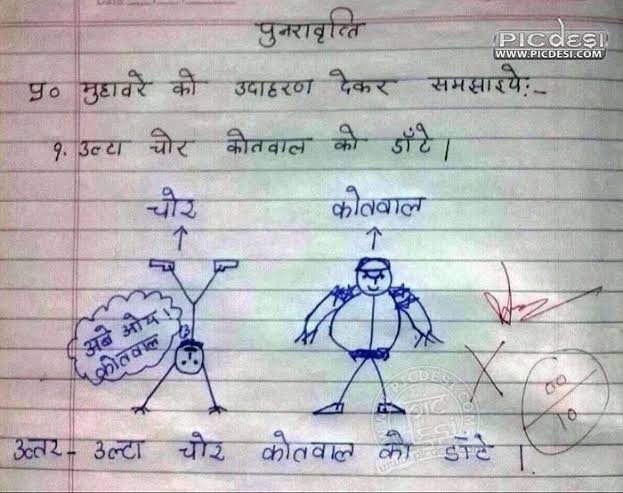 पुनरावृत्ति
PICDESI
WWW.PICDESI.COM
प्र० मुहावरे को उदाहरण देकर समझाइये:-
१. उल्टा चोर कोतवाल को डाँटे।
चोर कोतवाल
अबे ओय!
कोतवाल
00
10
PICDESI.COM
उत्तर - उल्टा चोर कोतवाल को डाँटे।